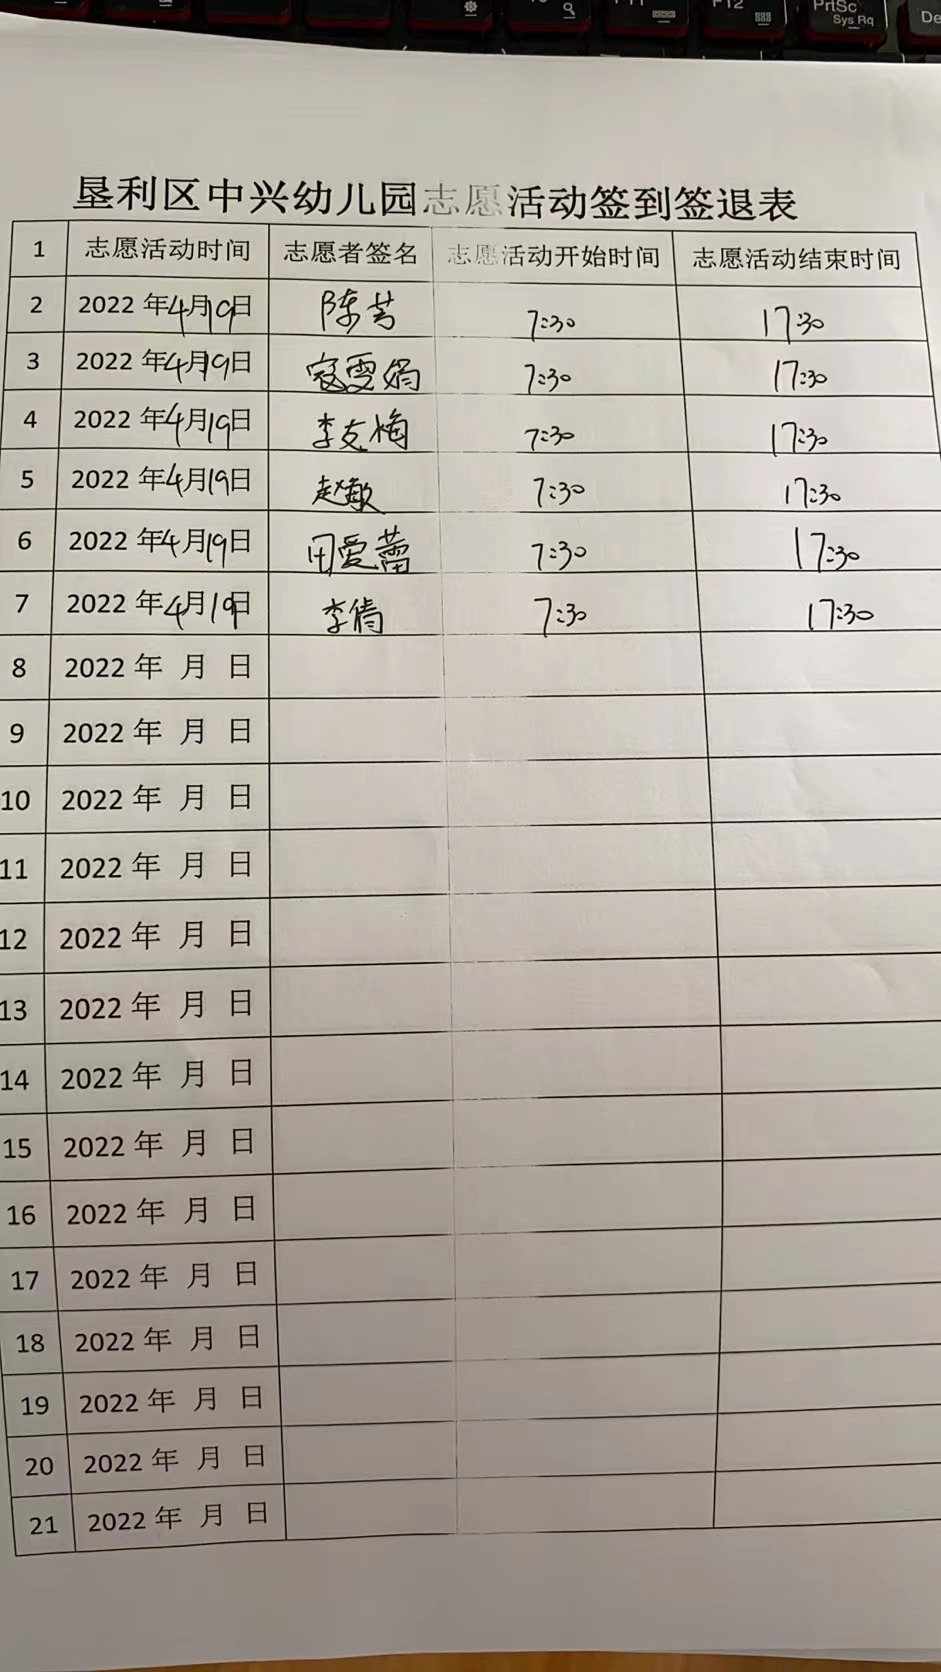 PrtSc
Sys Rq
F12
垦利区中兴幼儿园志愿活动签到签退表
1 志愿活动时间 志愿者签名 志愿活动开始时间 志愿活动结束时间
2 2022 年4月19日 陈芳 7:30 17:30
3 2022 年4月19日 寇雯娟 7:30 17:30
4 2022 年4月19日 李友梅 7:30 17:30
5 2022 年4月19日 赵敏 7:30 17:30
6 2022 年4月19日 田爱蕾 7:30 17:30
7 2022 年4月19日 李倩 7:30 17:30
8 2022 年 月 日
9 2022 年 月 日
10 2022 年 月 日
11 2022 年 月 日
12 2022 年 月 日
13 2022 年 月 日
14 2022 年 月 日
15 2022 年 月 日
16 2022 年 月 日
17 2022 年 月 日
18 2022 年 月 日
19 2022 年 月 日
20 2022 年 月 日
21 2022 年 月 日